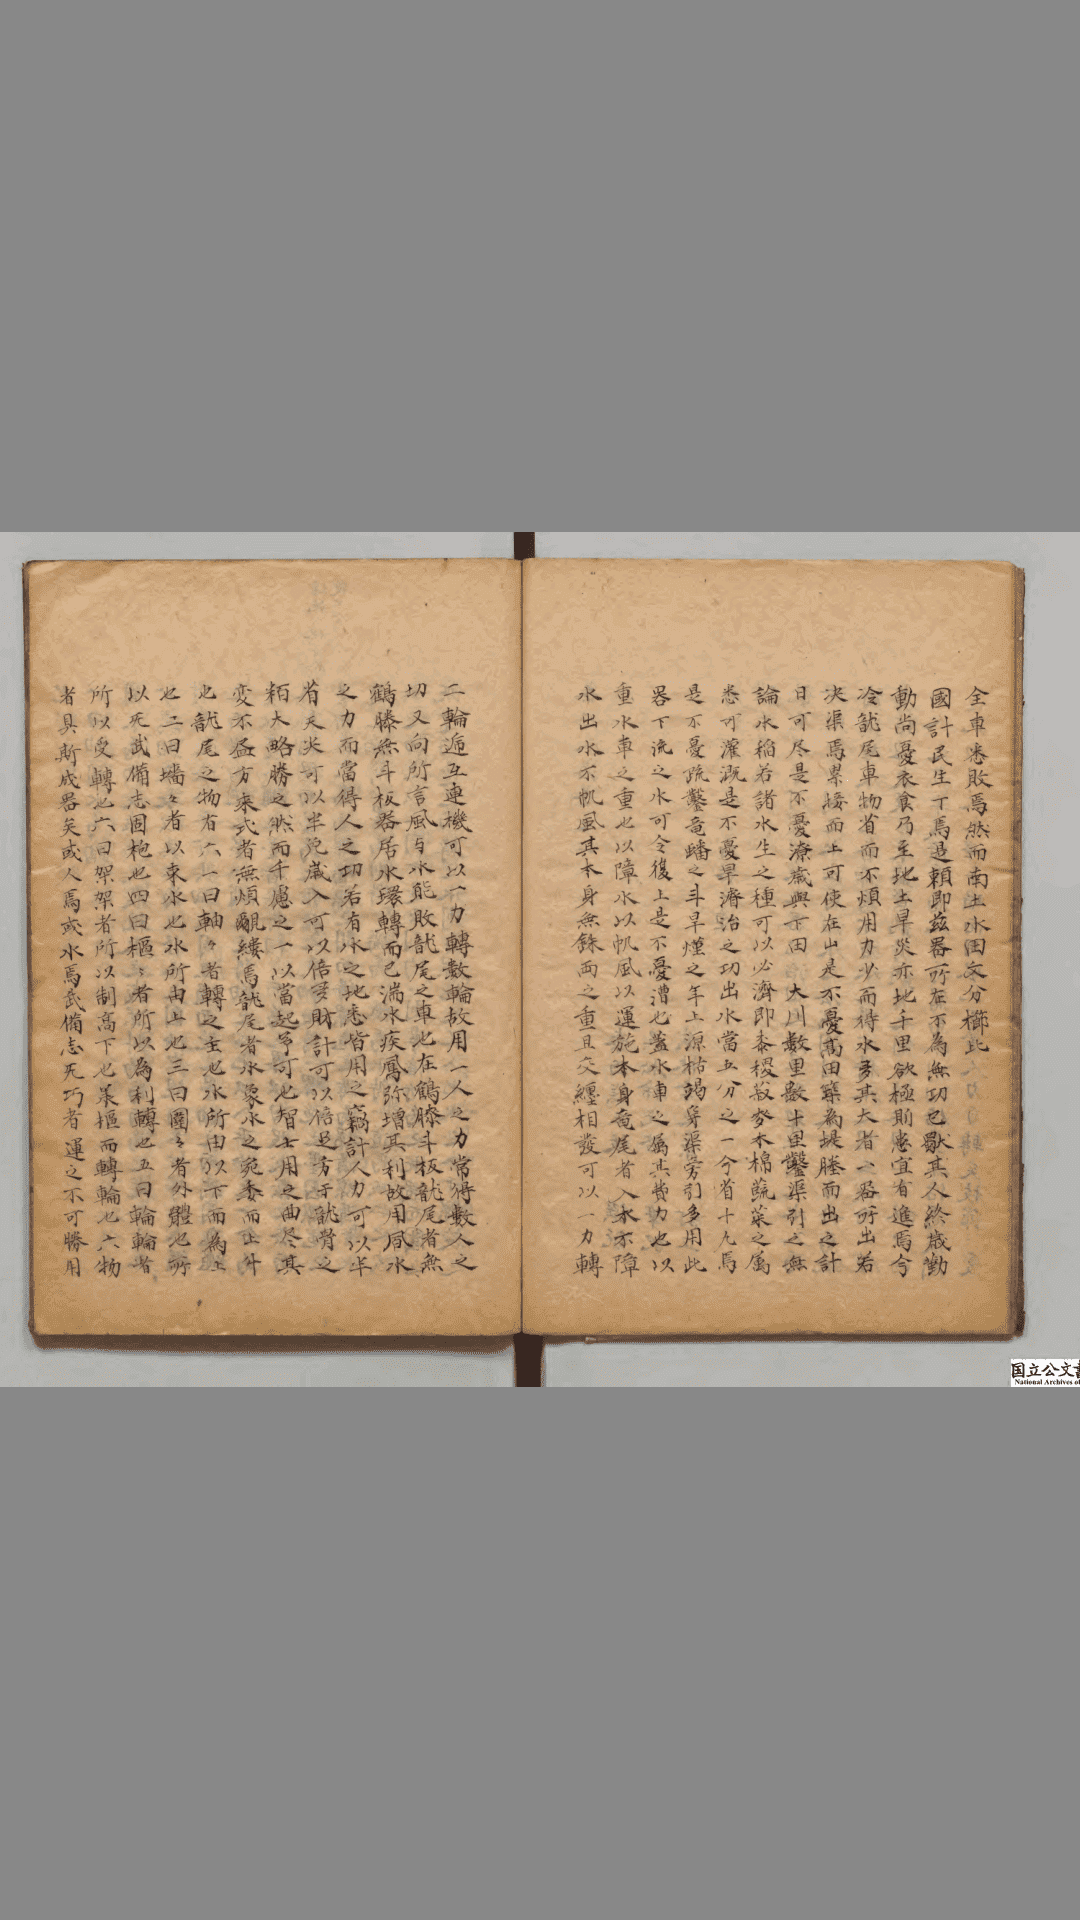 全車悉敗焉然而南土水田文分櫛比
國計民生丁焉是賴即茲器所在不為無功已獸其人終歳勤
動尚憂衣食乃至地土旱炎亦地千里欲極則患宜有進焉今
冷龍尾車物省而不煩用力少而待水多其大者一器所出若
决渠焉累接而上可使在山是不憂高田築為堤塍而出之計
日可尽是不憂潦歳與下田 大川數里數十里鑿渠引之無
論水稲若諸水生之種可以必濟即黍稷菽麥木棉蔬菜之属
悉可灌漑是不憂旱濟治之功出水當五分之一今省十九焉
是不憂疏鑿竜蟠之斗旱熯之年上源枯竭穿渠旁引多用此
器下流之水可令復上是不憂漕也蓋水車之属其費力也以
重水車之重也以障水以帆風以運施本身竜尾者入水不障
水出水不帆風其本身無銖両之重且交纏相發可以一力轉
二輪遞互連機可以一力轉數輪故用一人之力常得數人之
切又向所言風与水能敗龍尾之車也在鶴膝斗板龍尾者無
鶴膝無斗板器居水環轉而已湍水疾風弥増其利故用風水
之力而當得人之功若有水之地悉皆用之竊計人力可以半
省天灾可以半免歳入可以倍多財計可以倍足方于龍骨之
粨大略勝之然而千慮之一以當起予可也智士用之曲尽其
変不盡方来式者無煩覼縷焉龍尾者水象水之宛委而上升
也龍尾之物有六一曰軸々者轉之主也水所由以下而為上
也二曰墻々者以束水也水所由上也三曰圍々者外體也所
以死武備志固枹也四曰樞々者所以為利轉也五曰輪輪者
所以受轉也六曰架架者所以制高下也承樞而轉輪也六物
者具斯成器矣或人焉或水焉武備志死巧者運之不可勝用
国立公文書
National Archives of